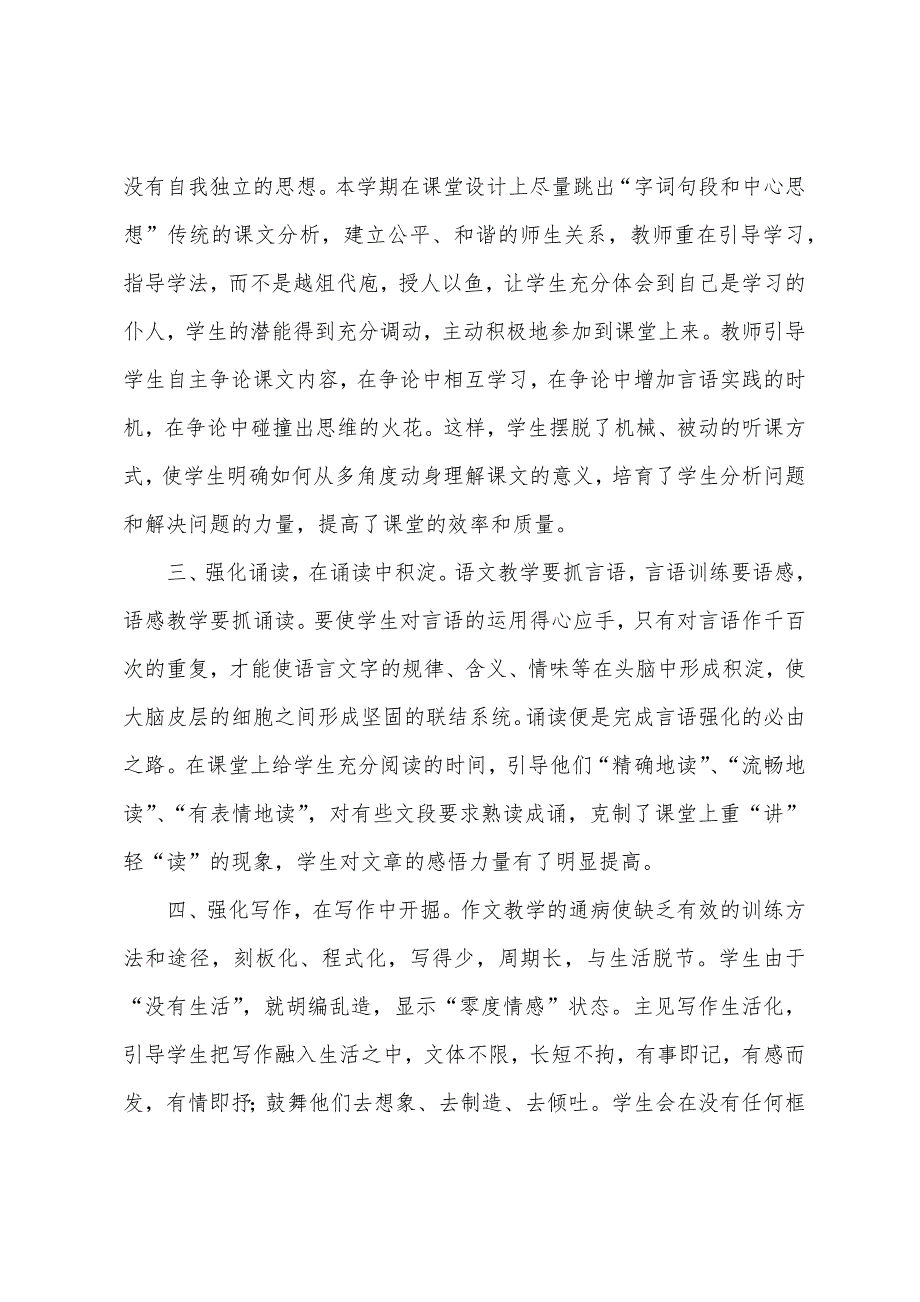 没有自我独立的思想。本学期在课堂设计上尽量跳出“字词句段和中心思
想”传统的课文分析，建立公平、和谐的师生关系，教师重在引导学习，
指导学法，而不是越俎代庖，授人以鱼，让学生充分体会到自己是学习的
仆人，学生的潜能得到充分调动，主动积极地参加到课堂上来。教师引导
学生自主争论课文内容，在争论中相互学习，在争论中增加言语实践的时
机，在争论中碰撞出思维的火花。这样，学生摆脱了机械、被动的听课方
式，使学生明确如何从多角度动身理解课文的意义，培育了学生分析问题
和解决问题的力量，提高了课堂的效率和质量。
三、强化诵读，在诵读中积淀。语文教学要抓言语，言语训练要语感，
语感教学要抓诵读。要使学生对言语的运用得心应手，只有对言语作千百
次的重复，才能使语言文字的规律、含义、情味等在头脑中形成积淀，使
大脑皮层的细胞之间形成坚固的联结系统。诵读便是完成言语强化的必由
之路。在课堂上给学生充分阅读的时间，引导他们“精确地读”、“流畅地
读”、“有表情地读”，对有些文段要求熟读成诵，克制了课堂上重“讲”
轻“读”的现象，学生对文章的感悟力量有了明显提高。
四、强化写作，在写作中开掘。作文教学的通病使缺乏有效的训练方
法和途径，刻板化、程式化，写得少，周期长，与生活脱节。学生由于
“没有生活”，就胡编乱造，显示“零度情感”状态。主见写作生活化，
引导学生把写作融入生活之中，文体不限，长短不拘，有事即记，有感而
发，有情即抒；鼓舞他们去想象、去制造、去倾吐。学生会在没有任何框